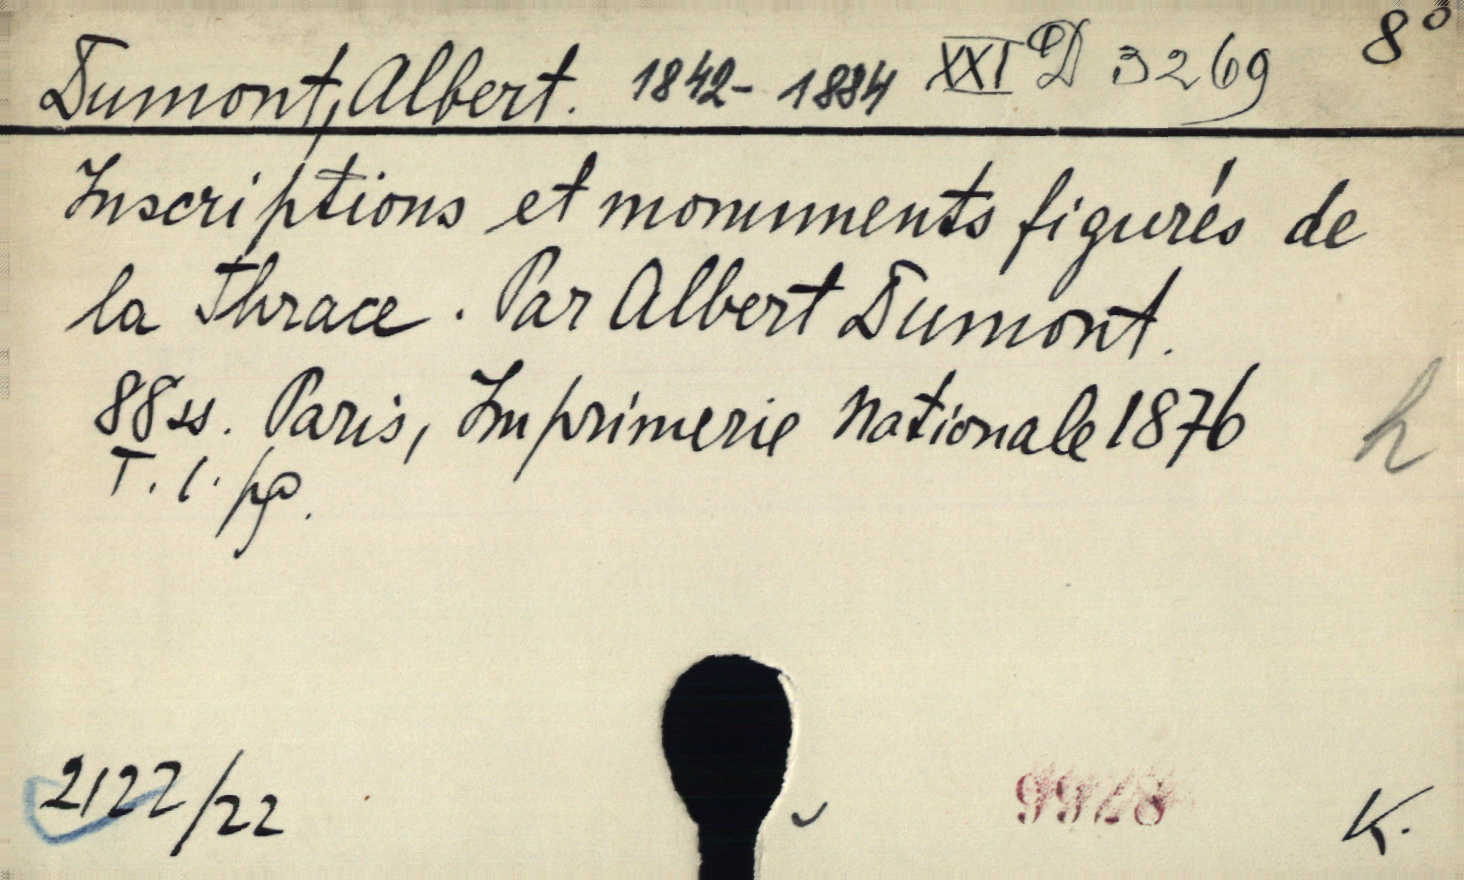 Dumont, Albert. 1842-1884 XXI D 3269 8°
Inscriptions et monuments figurés de
la Thrace. Par Albert Dumont.
88 ss. Paris, Imprimerie Nationale 1876
T. l. pp.
h
2122/22
K.